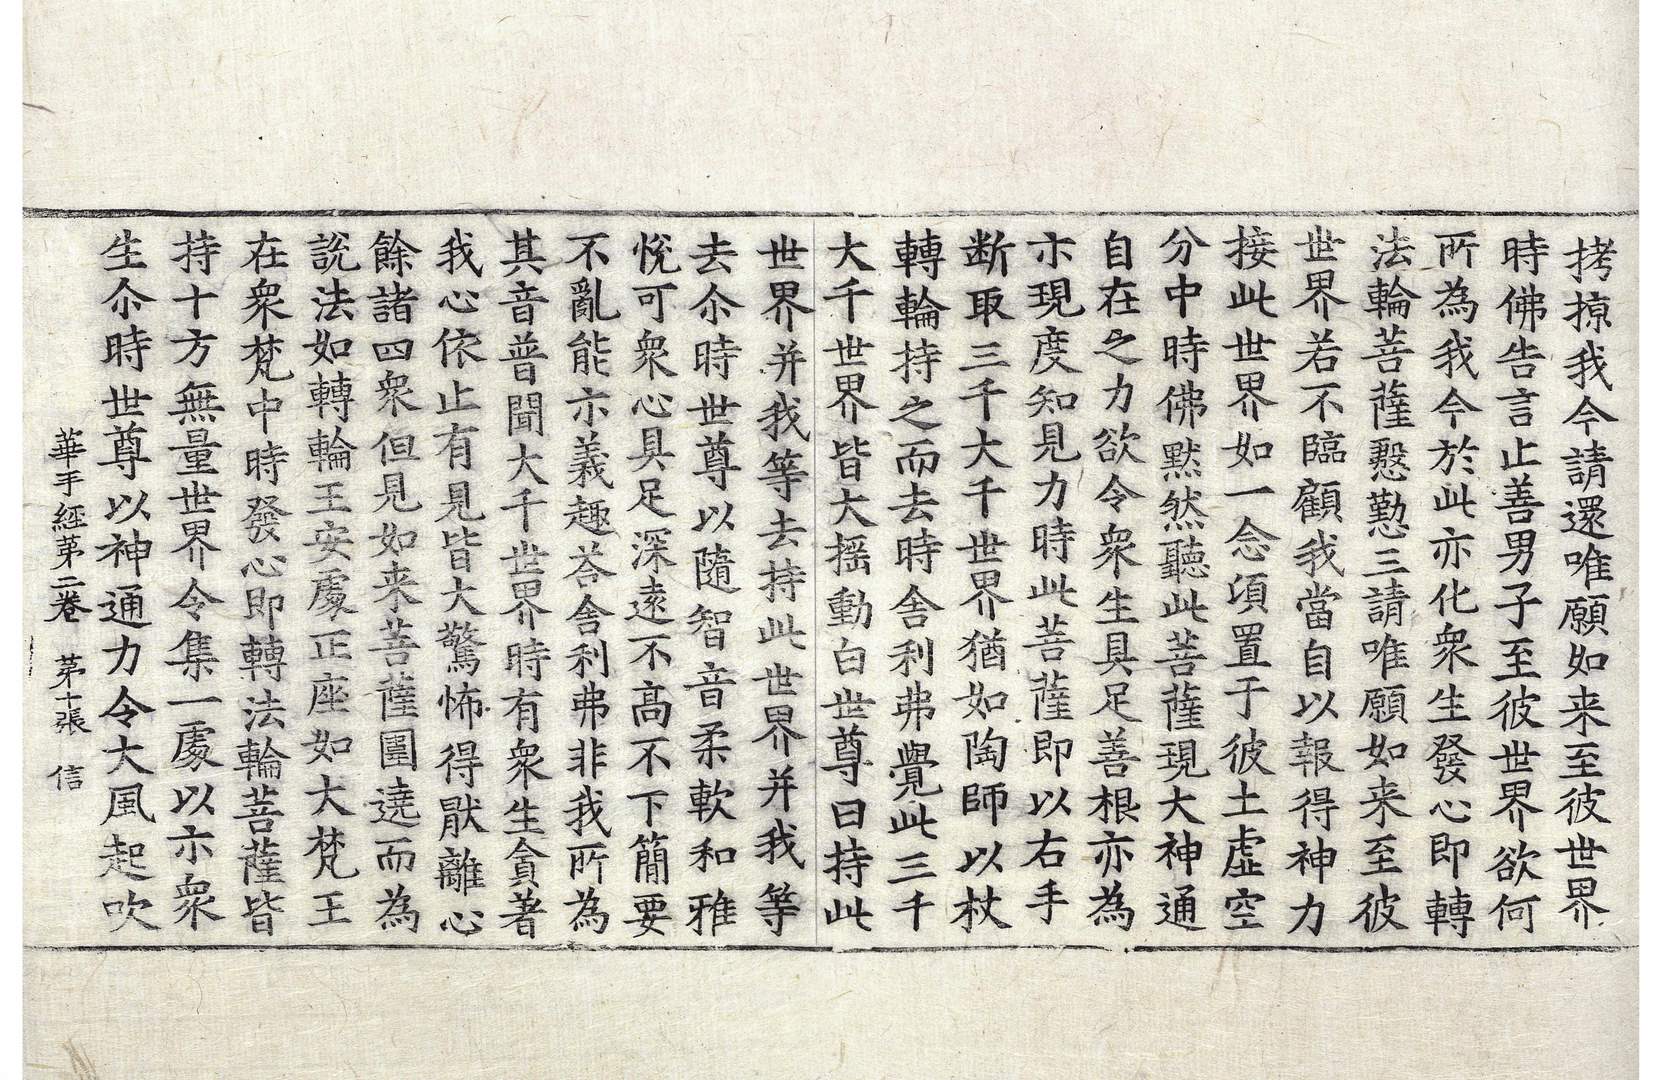 拷掠我今請還唯願如来至彼世界
時佛告言止善男子至彼世界欲何
所為我今於此亦化衆生發心即轉
法輪菩薩慇懃三請唯願如来至彼
世界若不臨顧我當自以報得神力
接此世界如一念頃置于彼土虛空
分中時佛黙然聽此菩薩現大神通
自在之力欲令衆生具足善根亦為
示現度知見力時此菩薩即以右手
断取三千大千世界猶如陶師以杖
轉輪持之而去時舍利弗覺此三千
大千世界皆大摇動白世尊曰持此
世界并我等去持此世界并我等
去尒時世尊以隨智音柔軟和雅
悅可衆心具足深遠不髙不下簡要
不亂能示義趣荅舍利弗非我所為
其音普聞大千世界時有衆生貪著
我心依止有見皆大驚怖得猒離心
餘諸四衆但見如来菩薩圍遶而為
說法如轉輪王安處正座如大梵王
在衆梵中時發心即轉法輪菩薩皆
持十方無量世界令集一處以示衆
生尒時世尊以神通力令大風起吹
華手經第二卷　第十張　信